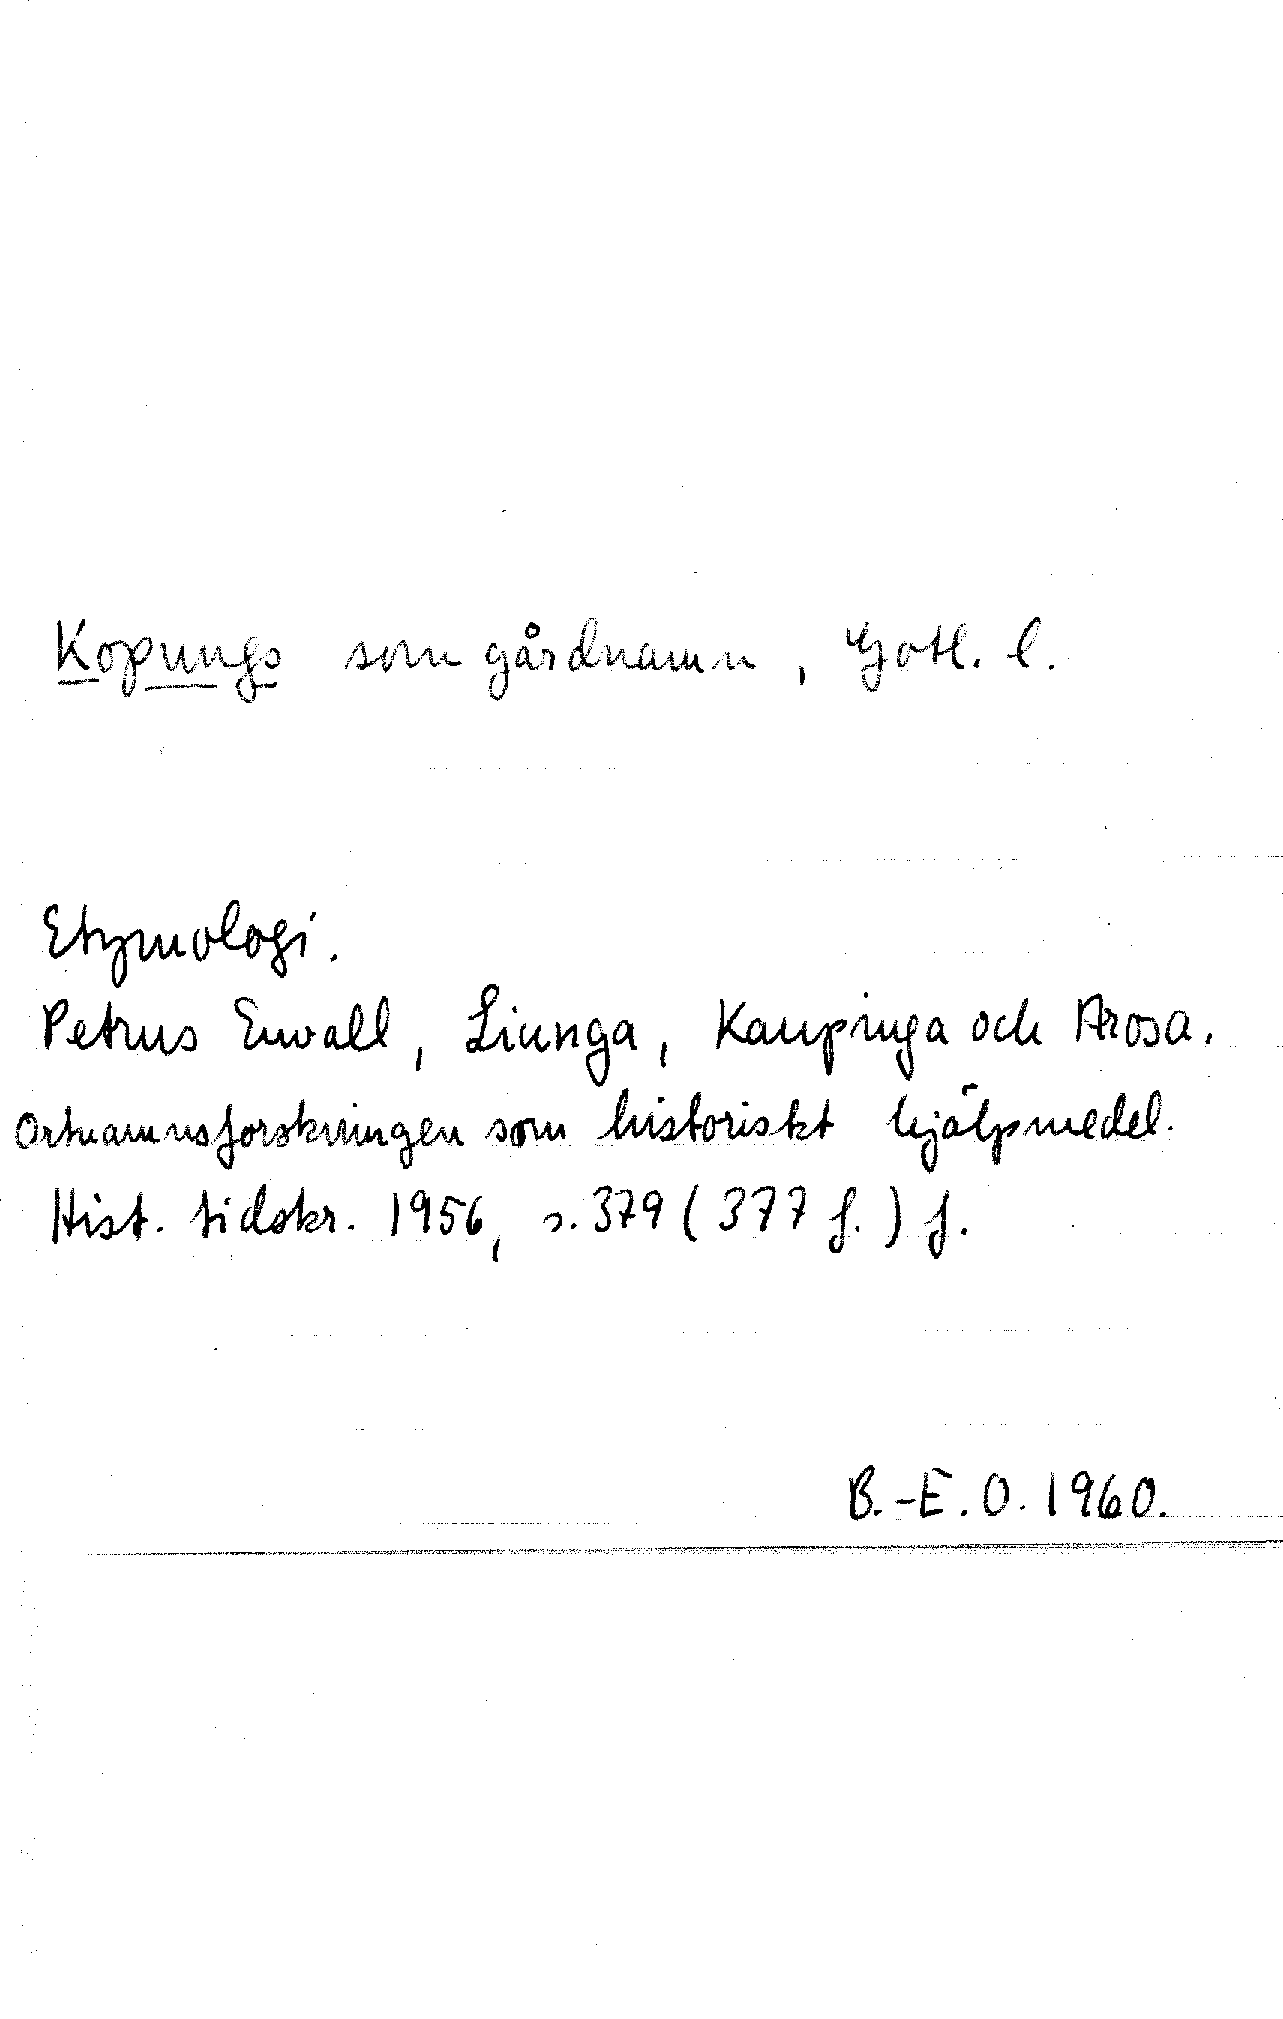 Kopungs som gårdnamn, Gotl. l.
Etymologi.
Petrus Envall, Liunga, Kaupinga och Arosa.
Ortnamnsforskningen som historiskt hjälpmedel.
Hist. tidskr. 1956, s. 379 (377 f.) f.
B.-E. O. 1960.